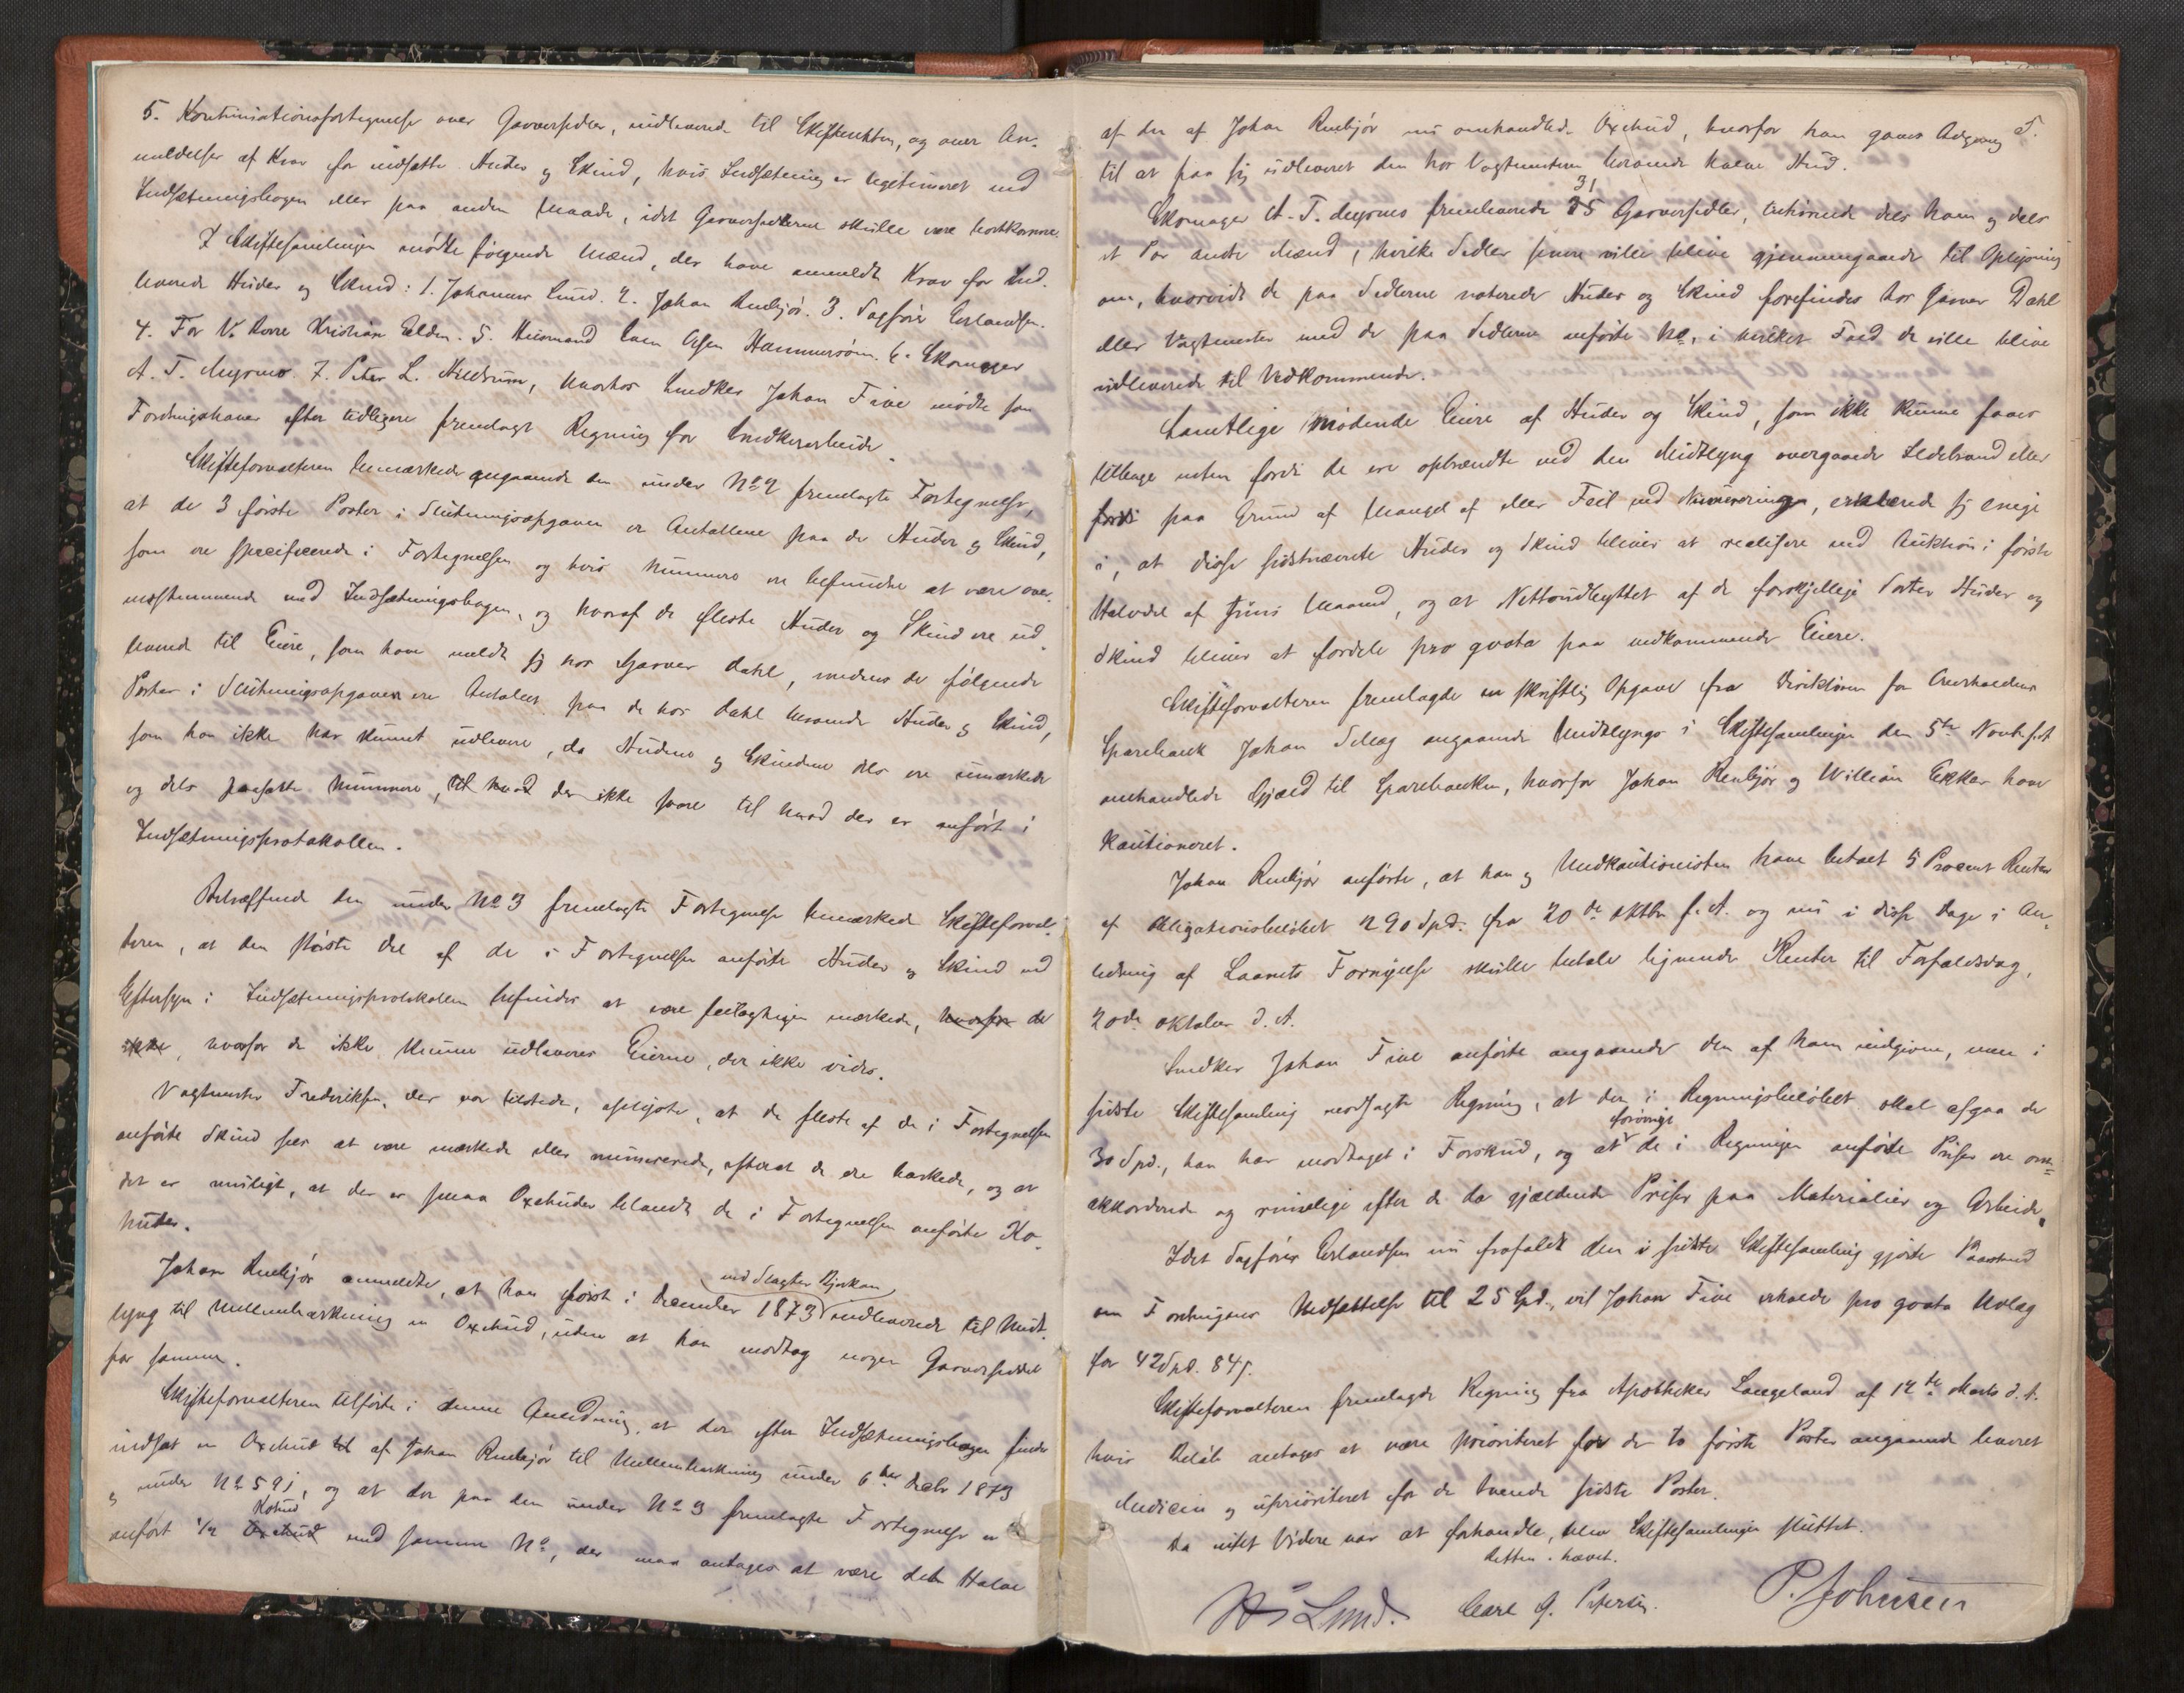 5. Kontinuationsfortegnelse over Garversedler, indleverede til Skifteretten, og over An-
meldelser af Krav for indsatte Huder og Skind, hvis Indsætning er legitimeret ved
Indsætningsbogen eller paa anden Maade, idet Garversedlerne skulle være bortkomne.
I Skiftesamlingen mødte følgende Mænd, der have anmeldt Krav for Ind-
leverede Huder og Skind: 1. Johannes Lund. 2. Johan Renbjør. 3. Sagfører Erlandsen.
4. For N. Hovre Kristian Elden. 5. Husmand Olsen Hammersøm. 6. Skomager
A. T. Myrmo. 7. Peter L. Hildrum, hvorhos Snedker Johan Five mødte som
Fordringshaver efter tidligere fremlagt Regning for Snedkerarbeide.
Skifteforvalteren bemærkede angaaende den under No 2 fremlagte Fortegnelse,
at de 3 første Poster i Slutningsopgaven er Antallene paa de Huder og Skind,
som ere specificerede i Fortegnelsen og hvis Nummere ere befundne at være over-
ensstemmende med Indsætningsbogen, og hvoraf de fleste Huder og Skind ere ud-
leverede til Eiere, som have meldt sig hos Garver Dahl, medens de følgende
Poster i Slutningsopgaven ere Antallet paa de hos Dahl beroende Huder og Skind,
som han ikke har kunnet udlevere, da Huderne og Skindene dels ere umærkede
og dels paasatte Nummere, til hvad der ikke svare til hvad der er anført i
Indsætningsprotokollen.
Betræffende den under No 3 fremlagte Fortegnelse bemærkede Skifteforval-
teren, at den største Del af de i Fortegnelsen anførte Huder og Skind ved
Eftersyn i Indsætningsprotokollen befindes at være feilagtigen mærkede, hvorfor de
ikke, hvorfor de ikke kunne udleveres Eierne, der ikke vides.
Vagtmester Frederiksen, der var tilstede, oplyste, at de fleste af de i Fortegnelsen
anførte Skind sees at være mærkede eller numererede, efterat de ere barkede, og at
det er muligt, at der er smaa Oxehuder blandt de i Fortegnelsen anførte Ko-
huder.
Johan Renbjør anmeldte, at han først i December 1873 ved Slagter Bjerkan indleverede til Midt-
lyng til Mellembarkning en Oxehud, uden at han modtog nogen Garverseddel
for samme.
Skifteforvalteren tilførte i denne Anledning, at der efter Indsætningsbogen findes
indsat en Oxehud til af Johan Renbjør til Mellembarkning under 6te Decbr 1873
og under No 591, og at der paa den under No 3 fremlagte Fortegnelse er
anført 1/2 Oxehud Kohud med samme No, der maa antages at være den Halve
af den af Johan Renbjør nu omhandlede Oxehud, hvorfor han gaves Adgang
til at faa sig udleveret den hos Vagtmesteren beroende halve Hud.
Skomager A. T. Myrmo fremleverede 25 31 Garversedler, tilhørende dels ham og dels
et Par andre Mænd, hvilke Sedler senere ville blive gjennemgaaede til Oplysning
om, hvorvidt de paa Sedlerne noterede Huder og Skind forefindes hos Garver Dahl
eller Vagtmester med de paa Sedlerne anførte No, i hvilket Fald de ville blive
udleverede til Vedkommende.
Samtlige mødende Eiere af Huder og Skind, som ikke kunne faaes
tilbage enten fordi de ere opbrændte ved den Midtlyng overgaaede Ildebrand eller
fordi paa Grund af Mangel af eller Feil ved Numereringen, erklærede sig enige
i, at disse sidstnævnte Huder og Skind bliver at realisere ved Auktion i første
Halvdel af Juni Maaned, og at Nettoudbyttet af de forskjellige Sorter Huder og
Skind bliver at fordele pro qvota paa vedkommende Eiere.
Skifteforvalteren fremlagde en skriftlig Opgave fra Direktøren for Overhaldens
Sparebank Johan Selæg angaaende Midtlyngs i Skiftesamlingen den 5te Novb. f. A.
omhandlede Gjæld til Sparebanken, hvorfor Johan Renbjør og William Ekker have
kautioneret.
Johan Renbjør anførte, at han og Medkautionisten have betalt 5 Procent Renter
af Obligationsbeløbet 290 Spd. fra 20de Oktbr. f. A. og nu i disse Dage i An-
ledning af Laanets Fornyelse skulle betale lignende Renter til Forfaldsdag,
20de Oktober d. A.
Snedker Johan Five anførte angaaende den af ham indgivne, men i
sidste Skiftesamling modsagte Regning, at der i Regningsbeløbet skal afgaa de
30 Spd., han har modtaget i Forskud, og at forøvrigt de i Regningen anførte Priser ere om-
akkorderede og rimelige efter de da gjældende Priser paa Materialier og Arbeide.
Idet Sagfører Erlandsen nu frafaldt den i sidste Skiftesamling gjorte Paastand
om Fordringens Nedsættelse til 25 Spd., vil Johan Five erholde pro qvota Udlæg
for 42 Spd. 84 s.
Skifteforvalteren fremlagde Regning fra Apotheker Langeland af 12te Marts d. A.
hvis Beløb antages at være prioriteret for de to første Poster angaaende leveret
Medicin og uprioriteret for de tvende sidste Poster.
Da intet Videre var at forhandle, blev Skiftesamlingen sluttet.
Retten hævet.
Hs Lund. Carl G. Petersen. P. Johnsen